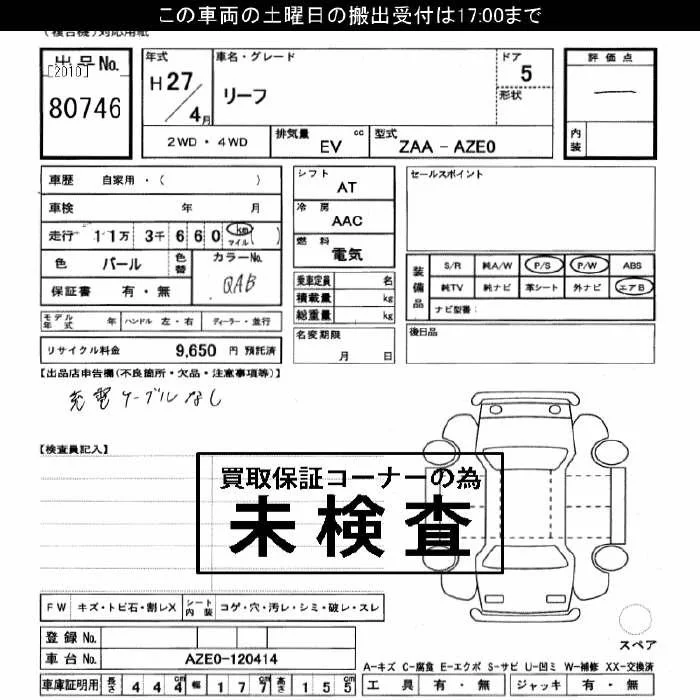 この車両の土曜日の搬出受付は17:00まで
(複合機)対応用紙
出品No.
[2010]
80746
年式
H27/4月
車名・グレード
リーフ
ドア
5
形状
評価点
内装
2WD・4WD
排気量 cc
EV
型式
ZAA - AZE0
車歴 自家用・( )
車検 年 月
走行 11万 3千 660 km マイル ( )
色 パール
色替
カラーNo.
QAB
保証書 有・無
シフト
AT
冷房
AAC
燃料
電気
乗車定員 名
積載量 kg
総重量 kg
セールスポイント
装備品
S/R 純A/W P/S P/W ABS
純TV 純ナビ 革シート 外ナビ エアB
ナビ型番:
モデル年式 年 ハンドル 左・右 ディーラー・並行
リサイクル料金 9,650 円 預託済
名変期限
月 日
後日品
【出品店申告欄(不良箇所・欠品・注意事項等)】
充電ケーブルなし
【検査員記入】
買取保証コーナーの為
未検査
FW キズ・トビ石・割レX シート内装 コゲ・穴・汚レ・シミ・破レ・スレ
登録No.
車台No. AZE0-120414
車庫証明用 長さ 444cm 幅 177cm 高さ 155cm
スペア
A-キズ C-腐食 E-エクボ S-サビ U-凹ミ W-補修 XX-交換済
工具 有・無 ジャッキ 有・無